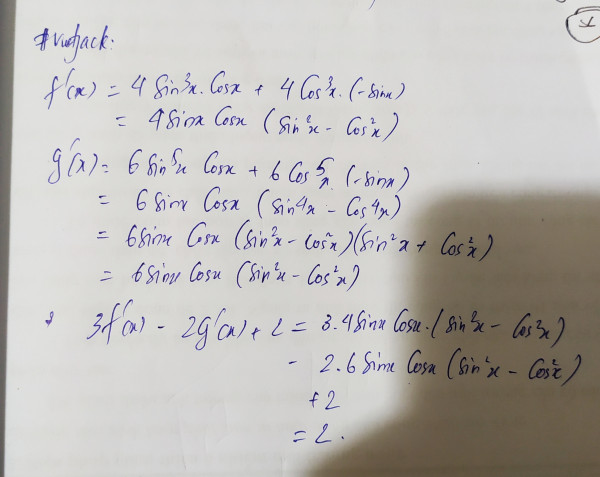 f'(x) = 4 Sin³x. Cosx + 4 Cos³x. (-Sinx)
= 4Sinx Cosx (Sin²x - Cos²x)
g'(x) = 6 Sin⁵x Cosx + 6 Cos⁵x. (-Sinx)
= 6 Sinx Cosx (Sin⁴x - Cos⁴x)
= 6Sinx Cosx (Sin²x - Cos²x)(Sin²x + Cos²x)
= 6Sinx Cosx (Sin²x - Cos²x)
3f'(x) - 2g'(x) + 2 = 3.4Sinx Cosx.(Sin²x - Cos²x)
- 2.6 Sinx Cosx (Sin²x - Cos²x)
+2
= 2.